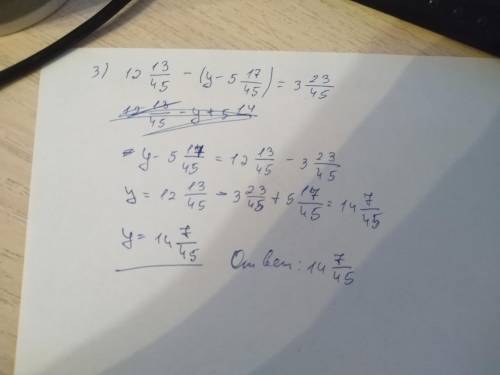 3) 12 13/45 - (y - 5 17/45) = 3 23/45
y - 5 17/45 = 12 13/45 - 3 23/45
y = 12 13/45 - 3 23/45 + 5 17/45 = 14 7/45
y = 14 7/45 Ответ: 14 7/45